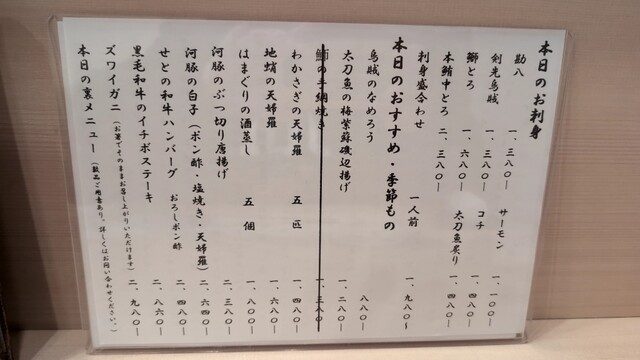 本日のお刺身
勘八 一、三八〇― サーモン 一、一〇〇―
剣先烏賊 一、三八〇― コチ 一、四八〇―
鰤とろ 一、六八〇― 太刀魚炙り 一、四八〇―
本鮪中とろ 二、三八〇―
刺身盛合わせ 一人前 一、九八〇~
本日のおすすめ・季節もの
烏賊のなめろう 八八〇―
太刀魚の梅紫蘇磯辺揚げ 一、二八〇―
鰤の手綱焼き 一、三八〇
わかさぎの天婦羅 五匹 一、四八〇―
地蛸の天婦羅 一、六八〇―
はまぐりの酒蒸し 五個 一、八〇〇―
河豚のぶつ切り唐揚げ 二、三八〇―
河豚の白子(ポン酢・塩焼き・天婦羅) 二、六四〇―
せとの和牛ハンバーグ おろしポン酢 二、四八〇―
黒毛和牛のイチボステーキ 二、八六〇―
ズワイガニ(お箸でそのままお召し上がりいただけます) 二、九八〇―
本日の裏メニュー(数品ご用意あり。詳しくはお問い合わせください。)